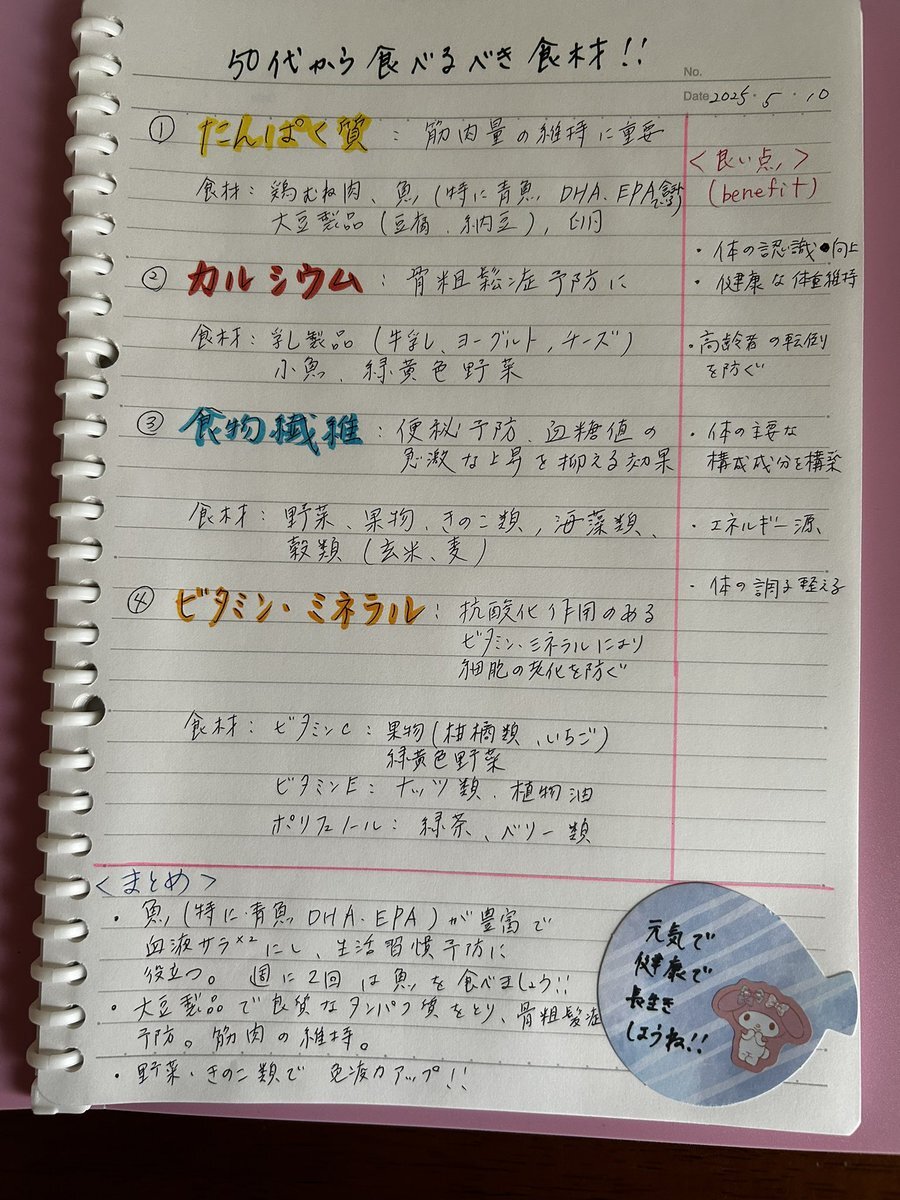 50代から食べるべき食材!!
No.
Date 2025・5・10
① たんぱく質 : 筋肉量の維持に重要
食材: 鶏むね肉、魚(特に青魚 DHA、EPA含む)
大豆製品(豆腐、納豆)、卵
② カルシウム : 骨粗鬆症予防に
食材: 乳製品(牛乳、ヨーグルト、チーズ)
小魚、緑黄色野菜
③ 食物繊維 : 便秘予防、血糖値の
急激な上昇を抑える効果
食材: 野菜、果物、きのこ類、海藻類、
穀類(玄米、麦)
④ ビタミン・ミネラル : 抗酸化作用のある
ビタミン・ミネラルにより
細胞の老化を防ぐ
食材: ビタミンC: 果物(柑橘類、いちご)
緑黄色野菜
ビタミンE: ナッツ類、植物油
ポリフェノール: 緑茶、ベリー類
<良い点>
(benefit)
・体の認識 向上
・健康な体重維持
・高齢者の転倒
を防ぐ
・体の主な
構成成分を構築
・エネルギー源、
・体の調子整える
<まとめ>
・魚(特に青魚 DHA・EPA)が豊富で
血液サラ×2にし、生活習慣予防に
役立つ。 週に2回は魚を食べましょう!!
・大豆製品で良質なタンパク質をとり、骨粗髪症
予防。筋肉の維持。
・野菜・きのこ類で 免疫力アップ!!
元気で
健康で
長生き
しようね!!